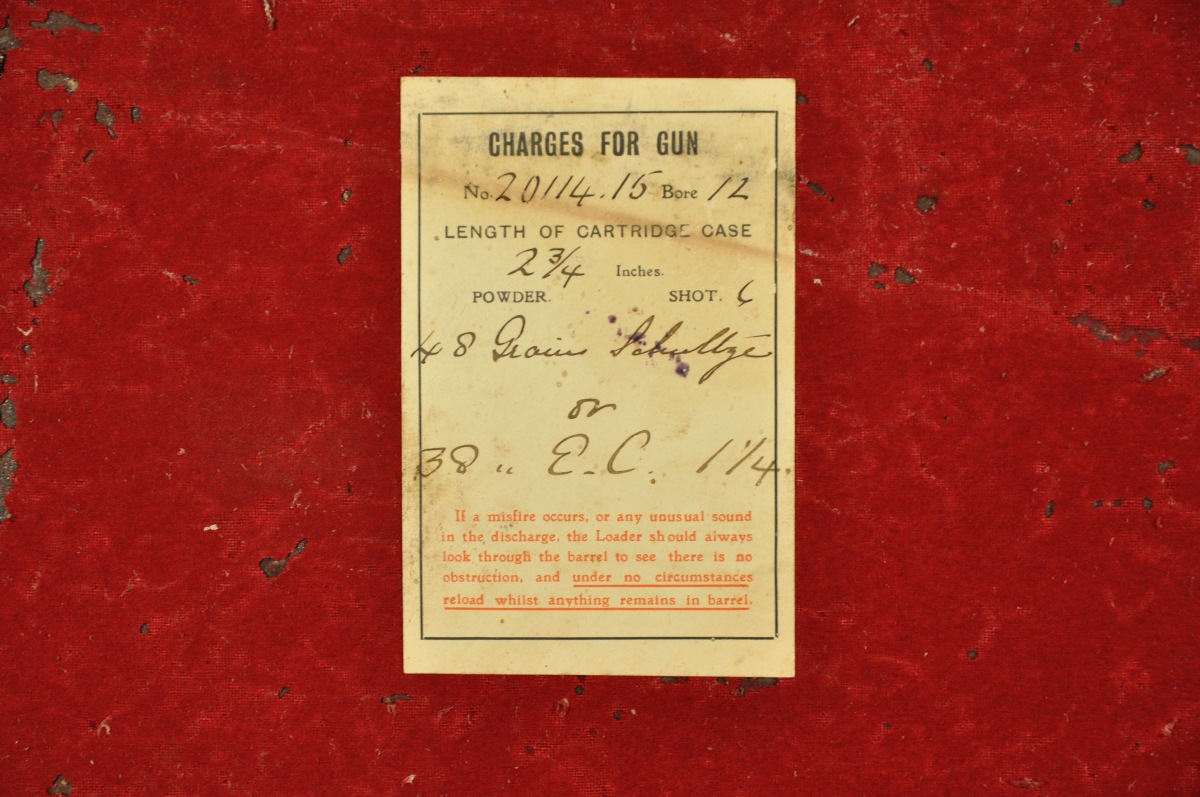 CHARGES FOR GUN
No. 20114.15 Bore 12
LENGTH OF CARTRIDGE CASE
2 3/4 Inches.
POWDER. SHOT. 6
48 Grains Schultze
or
38 " E-C. 1 1/4.
If a misfire occurs, or any unusual sound
in the discharge, the Loader should always
look through the barrel to see there is no
obstruction, and under no circumstances
reload whilst anything remains in barrel.